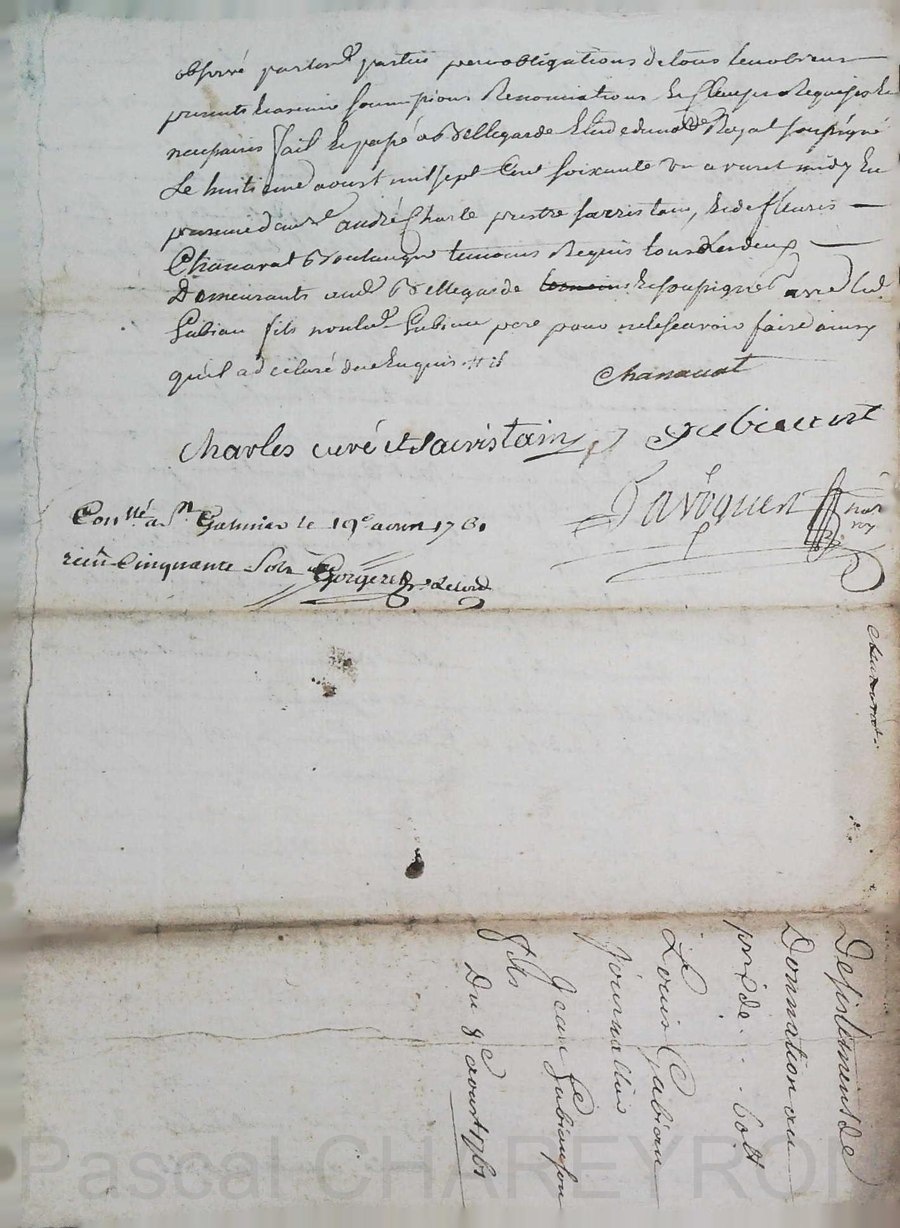 observé par lesd parties par obligations de tous leurs biens
presents soumissions Renonciations et Clauses Requises et
necessaires fait et passé a Bellegarde Etude du no.re Royal soussigné
Le huitieme aoust mil sept Cent soixante un avant midy En
presence de mre andré Charle prestre sacristain, et de fleuris
Chanavat Boulanger temoins Requis tous Les deux
Demeurants aud Bellegarde et soussignés avec led
Gubian fils non led Gubian pere pour ne le scavoir faire ainsy
qu'il a declaré de ce Enquis
Chanavat
Charles curé et Sacristain
Gubian
Conllé a St Galmier le 19e aoust 1761
reçu Cinquante Sols
Chanavat
Desistement de
Donnation au
prix de 60lt
Louis Gubian
journallier
Jean Gubian son
fils
Du 8e aoust 1761
Pascal CHAREYRON